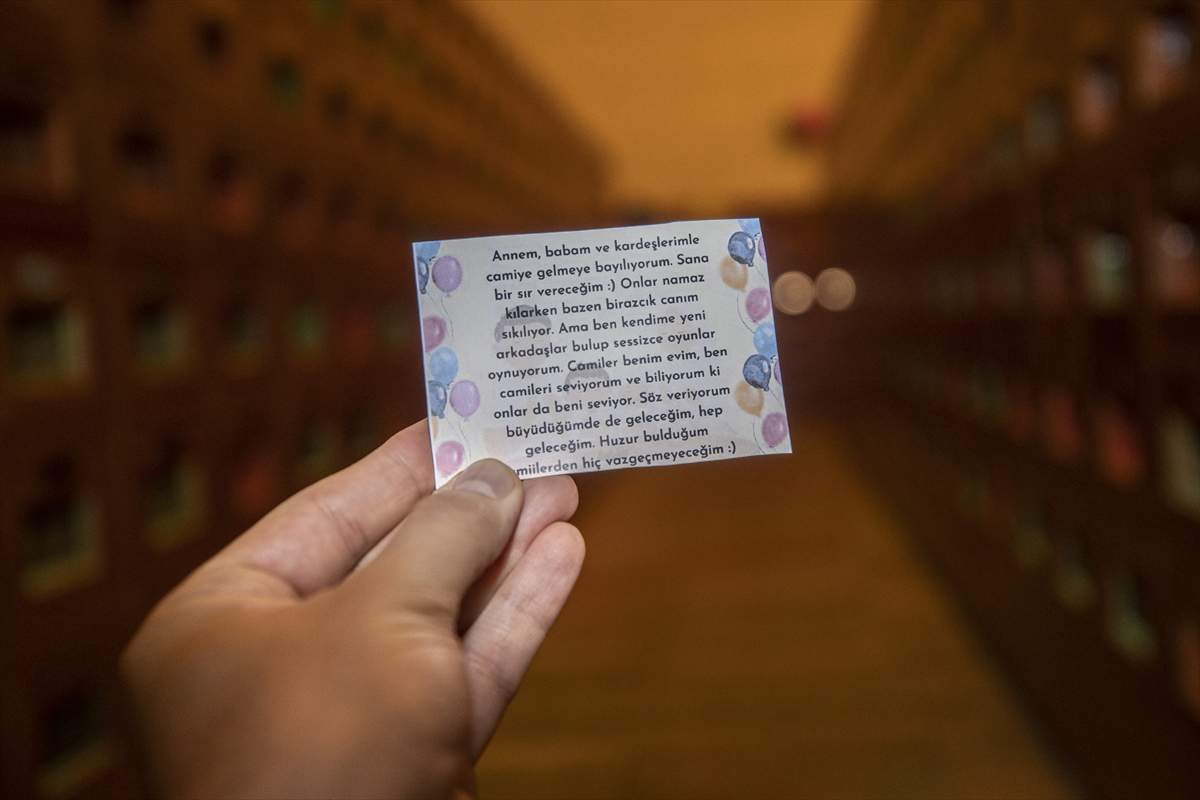 Annem, babam ve kardeşlerimle
camiye gelmeye bayılıyorum. Sana
bir sır vereceğim :) Onlar namaz
kılarken bazen birazcık canım
sıkılıyor. Ama ben kendime yeni
arkadaşlar bulup sessizce oyunlar
oynuyorum. Camiler benim evim, ben
camileri seviyorum ve biliyorum ki
onlar da beni seviyor. Söz veriyorum
büyüdüğümde de geleceğim, hep
geleceğim. Huzur bulduğum
miilerden hiç vazgeçmeyeceğim :)